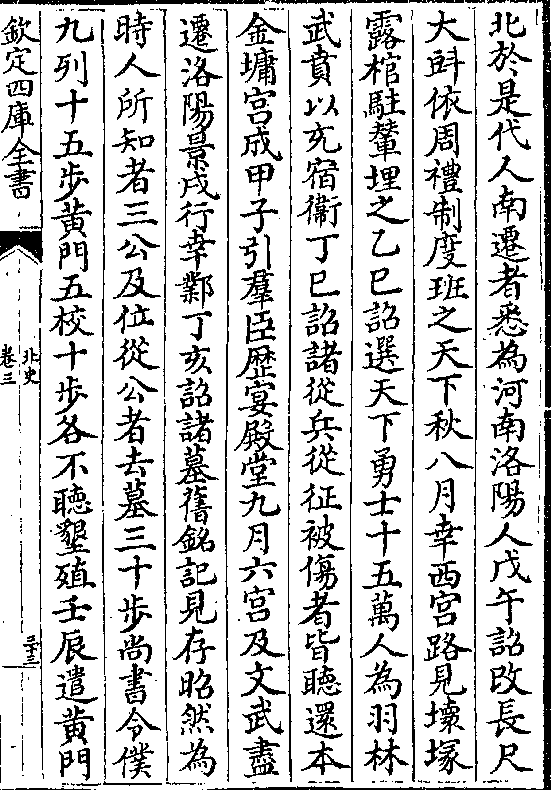 北於是代人南遷者悉為河南洛陽人戊午詔改長尺
大㪷依周禮制度班之天下秋八月幸西宮路見壞塚
露棺駐輦埋之乙巳詔選天下勇士十五萬人為羽林
武賁以充宿衞丁巳詔諸從兵從征被傷者皆聽還本
金墉宮成甲子引羣臣歴宴殿堂九月六宮及文武盡
遷洛陽景戌行幸鄴丁亥詔諸墓舊銘記見存昭然為
時人所知者三公及位從公者去墓三十步尚書令僕
九列十五步黃門五校十步各不聽墾殖壬辰遣黃門
欽定四庫全書
北史
卷三
三十三